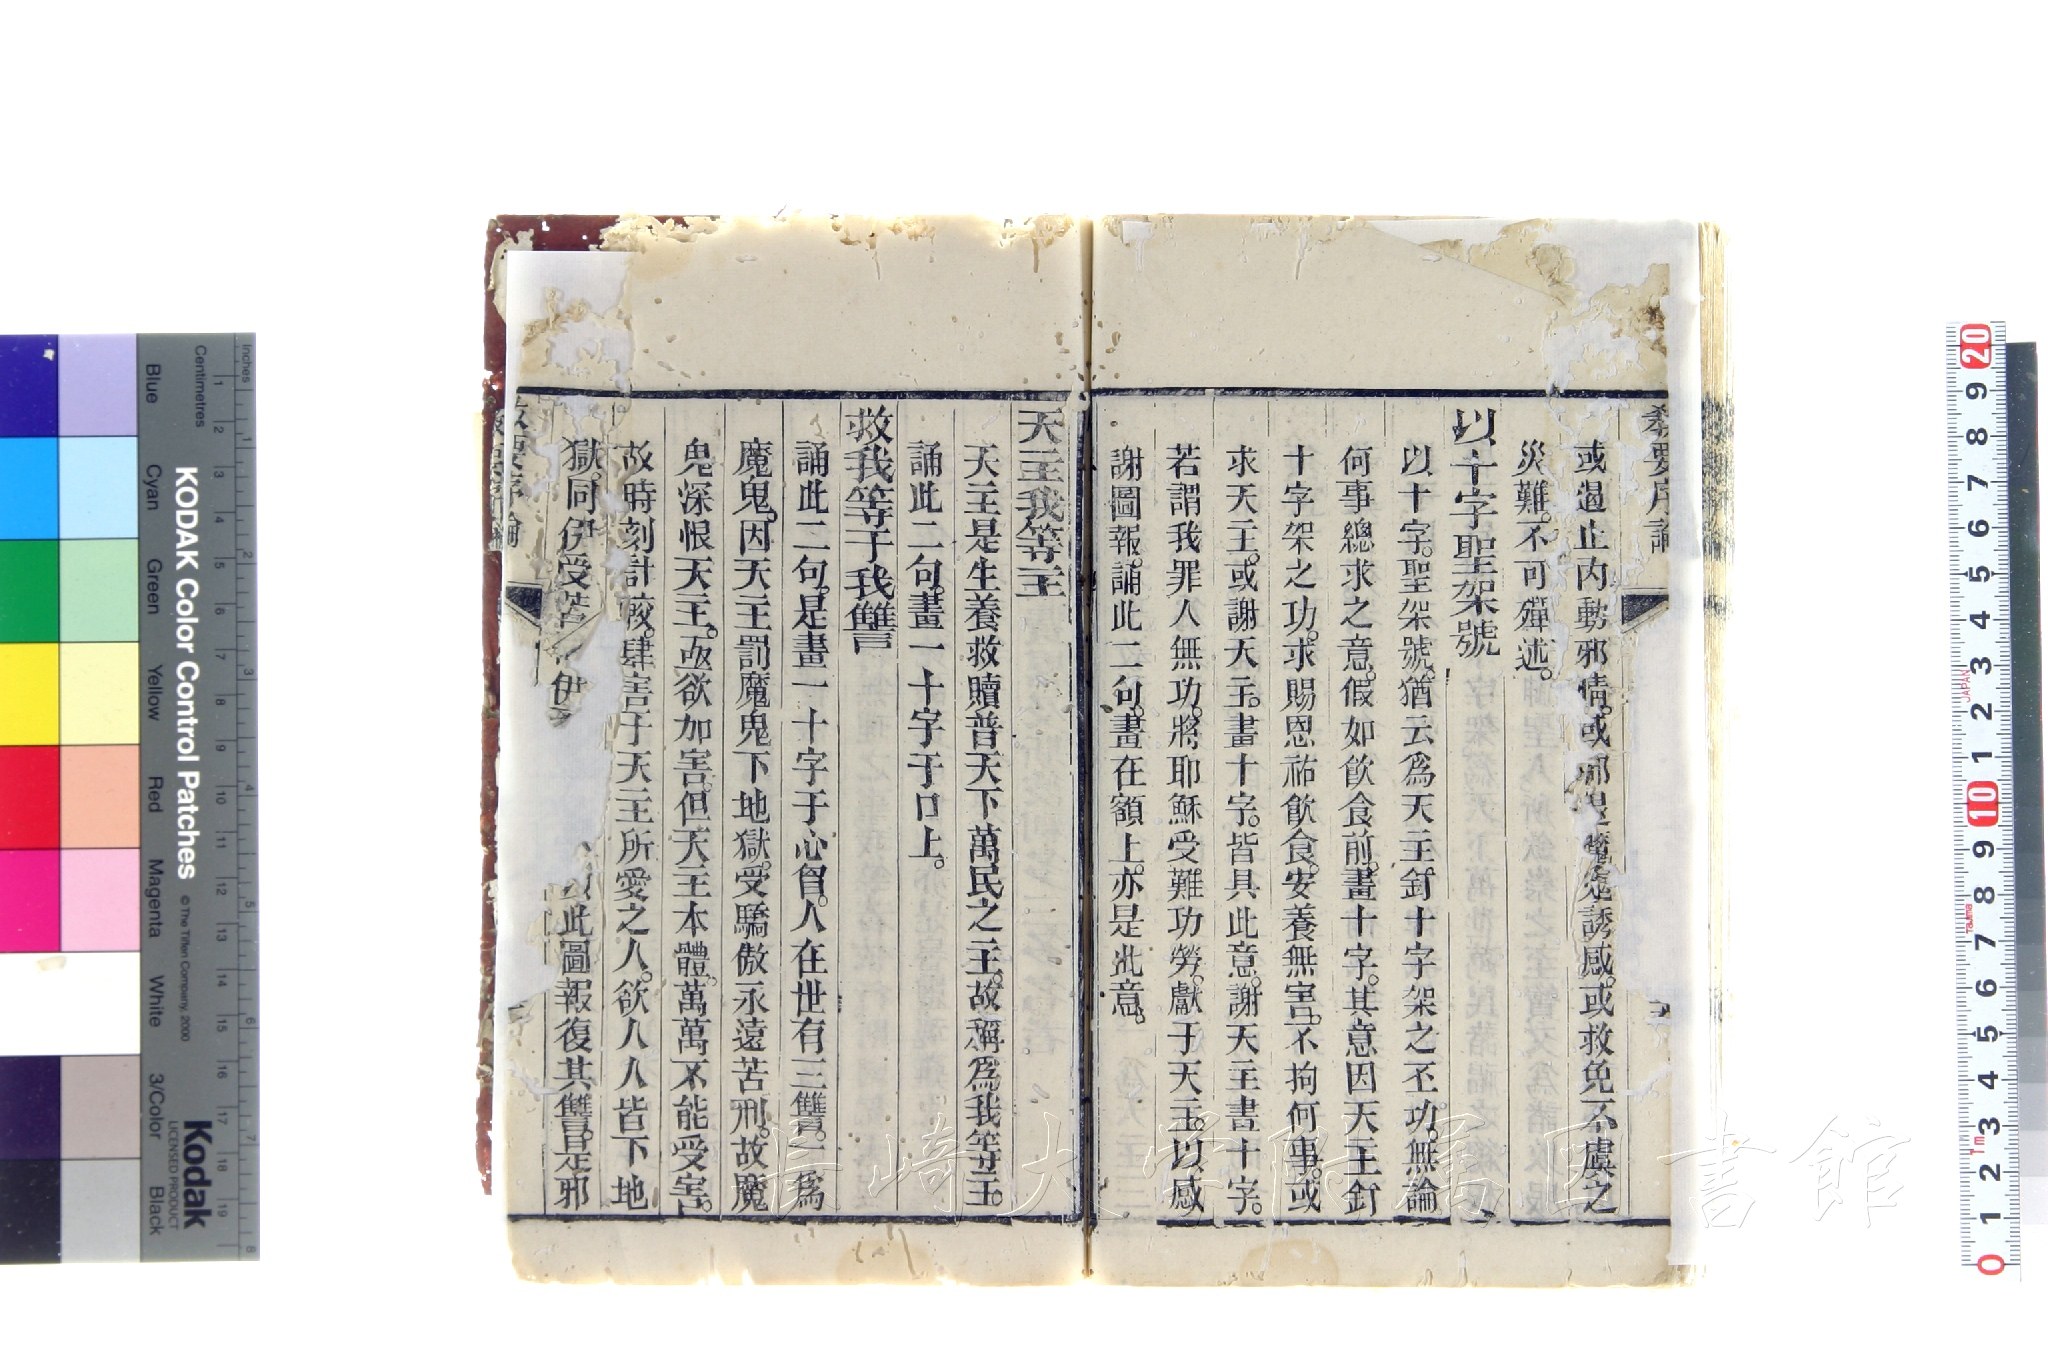 教要序論
或遏止內動邪情。或邪鬼魔鬼誘感。或救免不虞之
災難。不可殫述。
以十字聖架號
以十字。聖架號。猶云爲天主釘十字架之丕功。無論
何事總求之意。假如飮食前。畫十字。其意因天主釘
十字架之功。求賜恩祐飮食。安養無害。不拘何事。或
求天主。或謝天主。畫十字。皆具此意。謝天主畫十字。
若謂我罪人無功。將耶穌受難功勞。獻于天主。以感
謝圖報。誦此二句。畫在額上。亦是此意。
天主我等主
天主是生養救贖普天下萬民之主。故稱爲我等主。
誦此二句。畫一十字于口上。
救我等于我讐
誦此二句。是畫一十字于心胷。人在世有三讐。一爲
魔鬼。因天主罰魔鬼下地獄。受驕傲永遠苦刑。故魔
鬼深恨天主。亟欲加害。但天主本體。萬萬不能受害。
故時刻計較。肆害于天主所愛之人。欲人人皆下地
獄。同伊受苦 伊 此圖報復其讐。是邪
教要序論
長崎大学附属図書館
KODAK Color Control Patches
© The Tiffen Company, 2000
Kodak
LICENSED PRODUCT
Inches
Centimetres
Blue Cyan Green Yellow Red Magenta White 3/Color Black
1 2 3 4 5 6 7 8
1 2 3 4 5 6 7 8 9 10 11 12 13 14 15 16 17 18 19
20 9 8 7 6 5 4 3 2 1 10 9 8 7 6 5 4 3 2 1 0
JAPAN